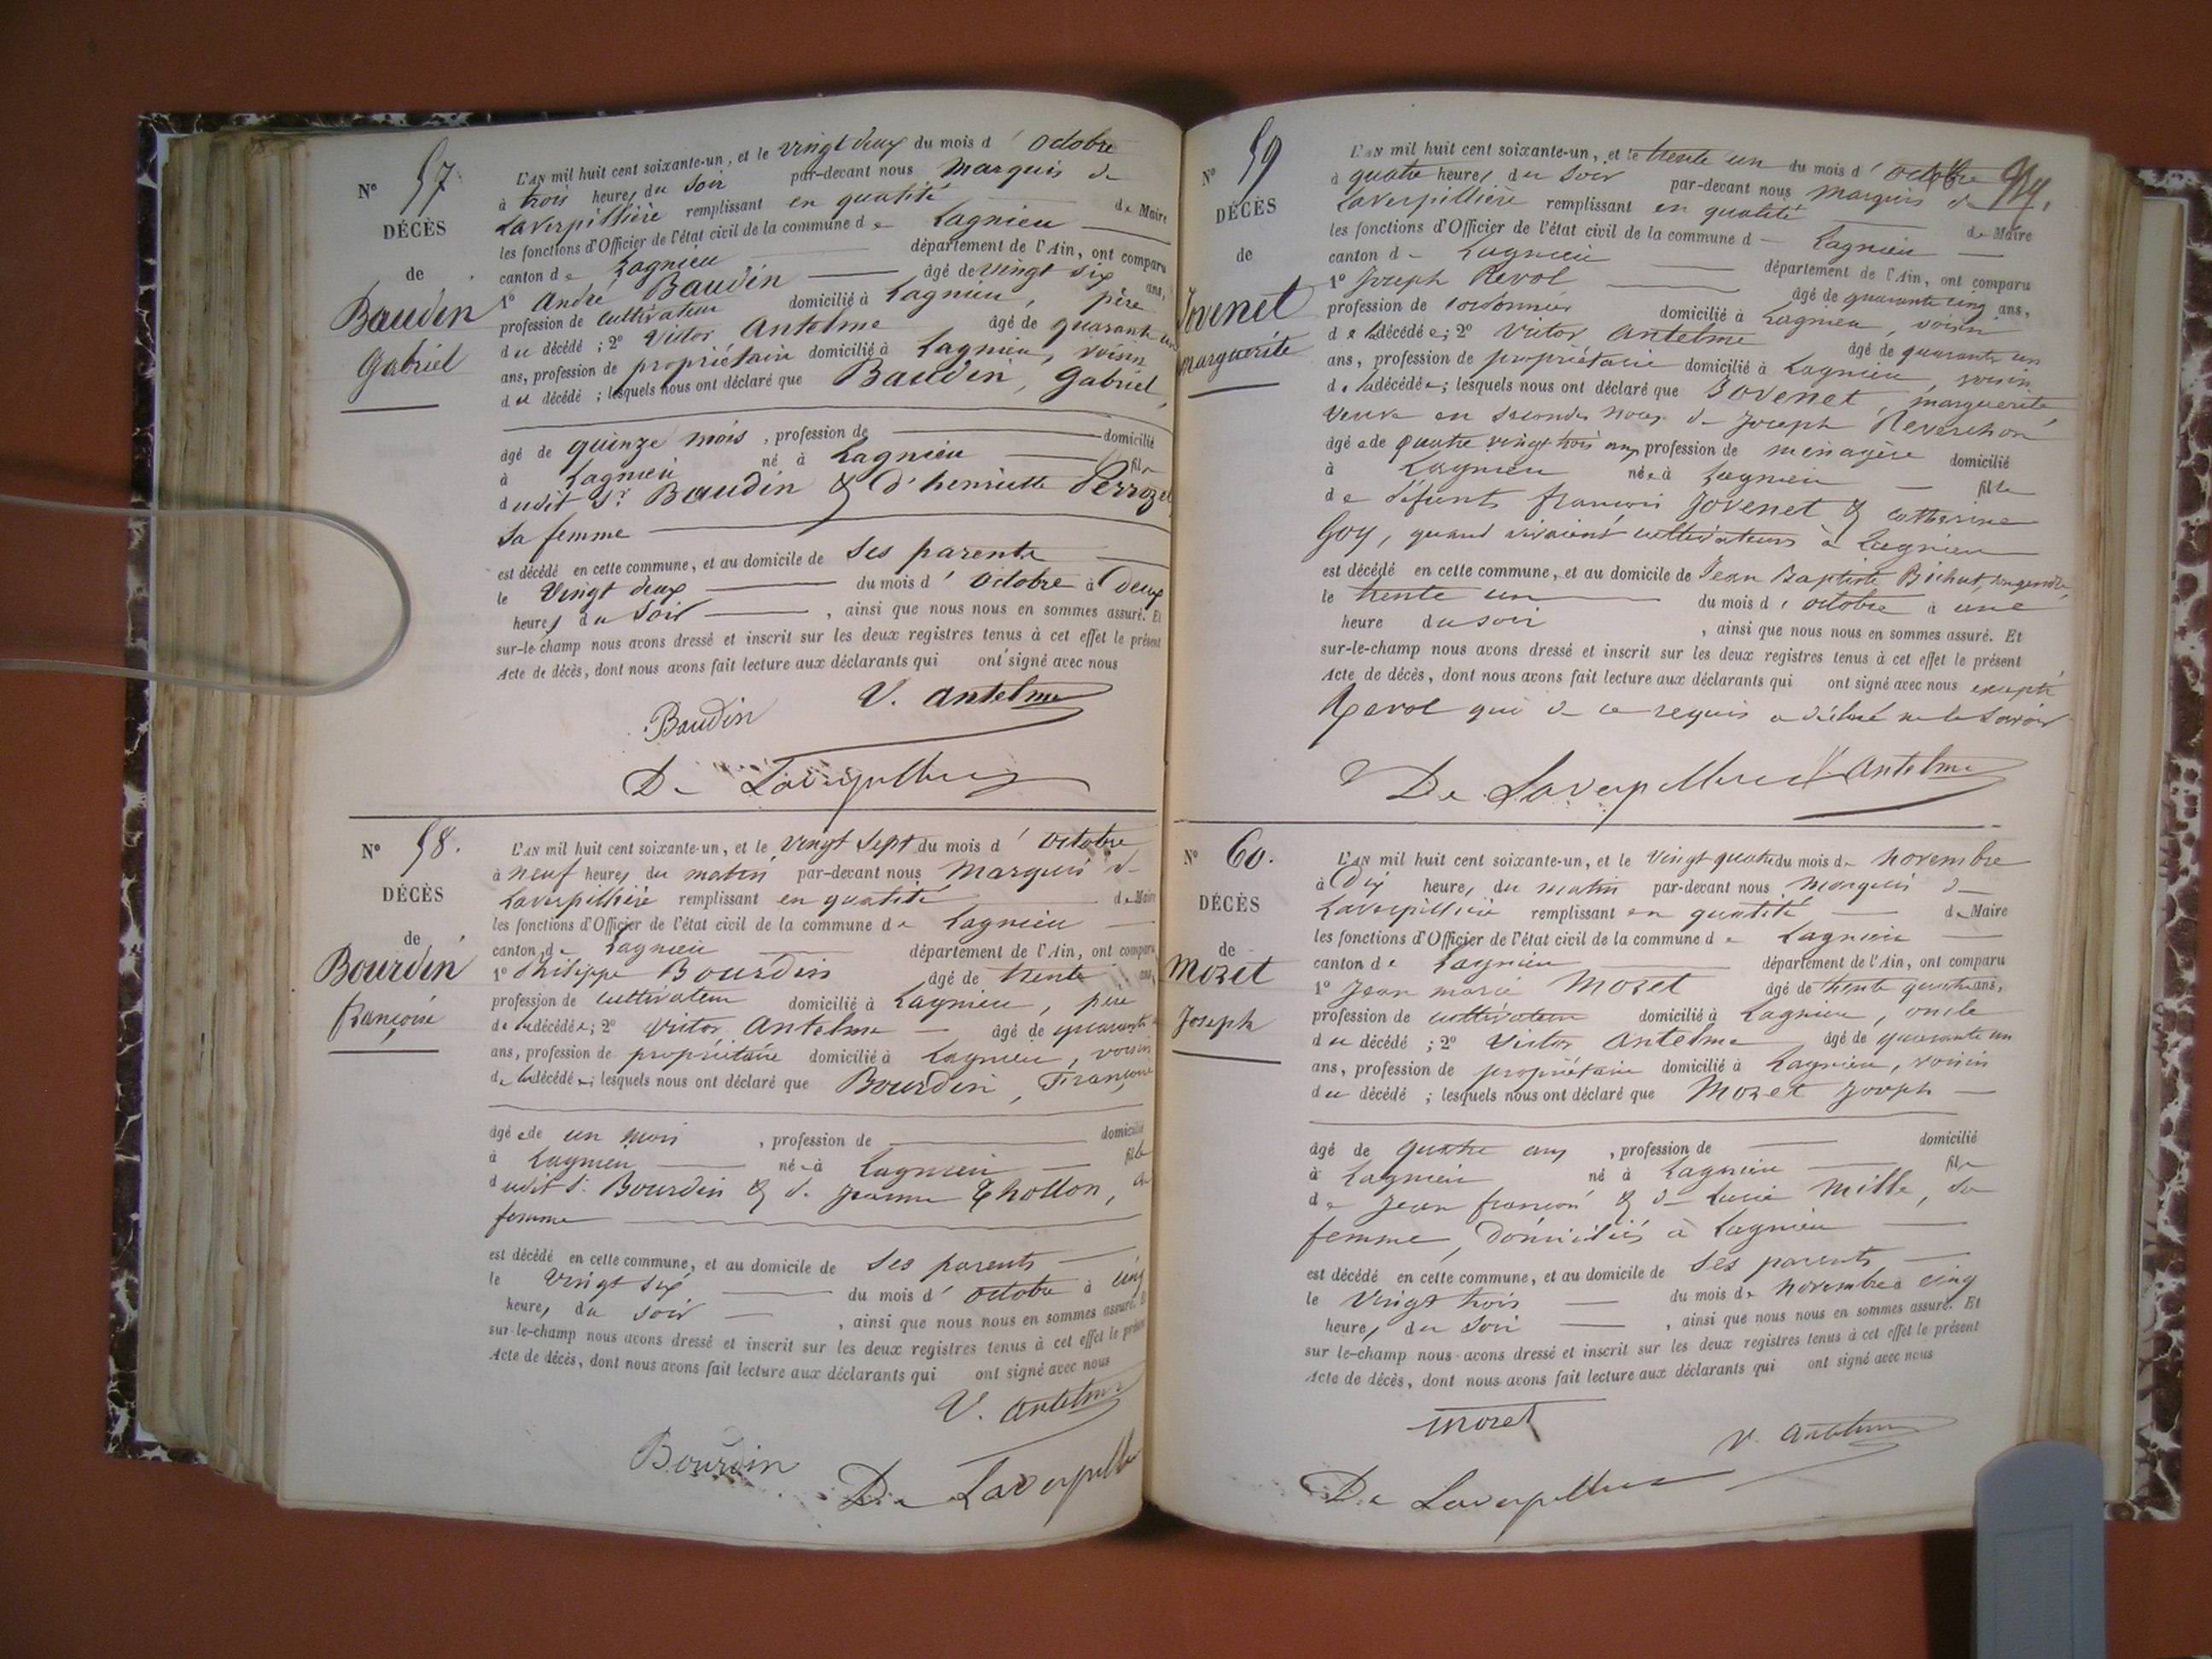 N° 57
DÉCÈS
de
Baudin
Gabriel
L'AN mil huit cent soixante-un, et le vingt deux du mois d'octobre
à trois heures du soir par-devant nous Marquis de
Laverpillière remplissant en qualité de Maire
les fonctions d'Officier de l'état civil de la commune de Lagnieu
canton de Lagnieu département de l'Ain, ont comparu
1° André Baudin âgé de vingt six ans,
profession de cultivateur domicilié à Lagnieu, père
du décédé ; 2° Victor Antelme âgé de quarante un
ans, profession de propriétaire domicilié à Lagnieu, voisin
du décédé ; lesquels nous ont déclaré que Baudin, Gabriel,
âgé de quinze mois, profession de domicilié
à Lagnieu né à Lagnieu fils
dudit Sr Baudin & d'henriette Perrozet
sa femme
est décédé en cette commune, et au domicile de ses parents
le vingt deux du mois d'octobre à deux
heures du soir, ainsi que nous nous en sommes assuré. Et
sur-le-champ nous avons dressé et inscrit sur les deux registres tenus à cet effet le présent
Acte de décès, dont nous avons fait lecture aux déclarants qui ont signé avec nous
V. Antelme
Baudin
De Laverpilliere
N° 58.
DÉCÈS
de
Bourdin
françoise
L'AN mil huit cent soixante-un, et le vingt sept du mois d'octobre
à neuf heures du matin par-devant nous Marquis de
Laverpillière remplissant en qualité de Maire
les fonctions d'Officier de l'état civil de la commune de Lagnieu
canton de Lagnieu département de l'Ain, ont comparu
1° Philippe Bourdin âgé de trente ans,
profession de cultivateur domicilié à Lagnieu, père
de la décédée ; 2° Victor Antelme âgé de quarante
ans, profession de propriétaire domicilié à Lagnieu, voisin
de la décédée ; lesquels nous ont déclaré que Bourdin, Françoise
âgée de un mois, profession de domicilié
à Lagnieu née à Lagnieu fille
dudit Sr Bourdin & de jeanne Thollon, sa
femme
est décédé en cette commune, et au domicile de ses parents
le vingt six du mois d'octobre à cinq
heures du soir, ainsi que nous nous en sommes assuré. Et
sur-le-champ nous avons dressé et inscrit sur les deux registres tenus à cet effet le présent
Acte de décès, dont nous avons fait lecture aux déclarants qui ont signé avec nous
V. Antelme
Bourdin
De Laverpilliere
N° 59
DÉCÈS
de
Jovenet
marguerite
L'AN mil huit cent soixante-un, et le trente un du mois d'octobre
à quatre heures du soir par-devant nous Marquis de
Laverpillière remplissant en qualité de Maire
les fonctions d'Officier de l'état civil de la commune de Lagnieu
canton de Lagnieu département de l'Ain, ont comparu
1° Joseph Revol âgé de quarante cinq ans,
profession de cordonnier domicilié à Lagnieu, voisin
de la décédée ; 2° Victor Antelme âgé de quarante un
ans, profession de propriétaire domicilié à Lagnieu, voisin
de la décédée ; lesquels nous ont déclaré que Jovenet, marguerite
veuve en secondes noces de Joseph Reverchon
âgée de quatre vingt trois ans, profession de ménagère domicilié
à Lagnieu née à Lagnieu fille
de défunts françois Jovenet & catherine
Goy, quand vivaient cultivateurs à Lagnieu
est décédé en cette commune, et au domicile de Jean Baptiste Bichat,
le trente un du mois d'octobre à une
heure du soir, ainsi que nous nous en sommes assuré. Et
sur-le-champ nous avons dressé et inscrit sur les deux registres tenus à cet effet le présent
Acte de décès, dont nous avons fait lecture aux déclarants qui ont signé avec nous excepté
Revol qui de ce requis a déclaré ne le savoir
De Laverpilliere V. Antelme
N° 60.
DÉCÈS
de
Mozet
Joseph
L'AN mil huit cent soixante-un, et le vingt quatre du mois de novembre
à Dix heures du matin par-devant nous Marquis de
Laverpillière remplissant en qualité de Maire
les fonctions d'Officier de l'état civil de la commune de Lagnieu
canton de Lagnieu département de l'Ain, ont comparu
1° Jean marie Mozet âgé de trente quatre ans,
profession de cultivateur domicilié à Lagnieu, oncle
du décédé ; 2° Victor Antelme âgé de quarante un
ans, profession de propriétaire domicilié à Lagnieu, voisin
du décédé ; lesquels nous ont déclaré que Mozet Joseph
âgé de quatre ans, profession de domicilié
à Lagnieu né à Lagnieu fils
de Jean françois & de Lucie Mille, sa
femme, domiciliés à Lagnieu
est décédé en cette commune, et au domicile de ses parents
le vingt trois du mois de novembre à cinq
heures du soir, ainsi que nous nous en sommes assuré. Et
sur le-champ nous avons dressé et inscrit sur les deux registres tenus à cet effet le présent
Acte de décès, dont nous avons fait lecture aux déclarants qui ont signé avec nous
mozet
V. Antelme
De Laverpilliere